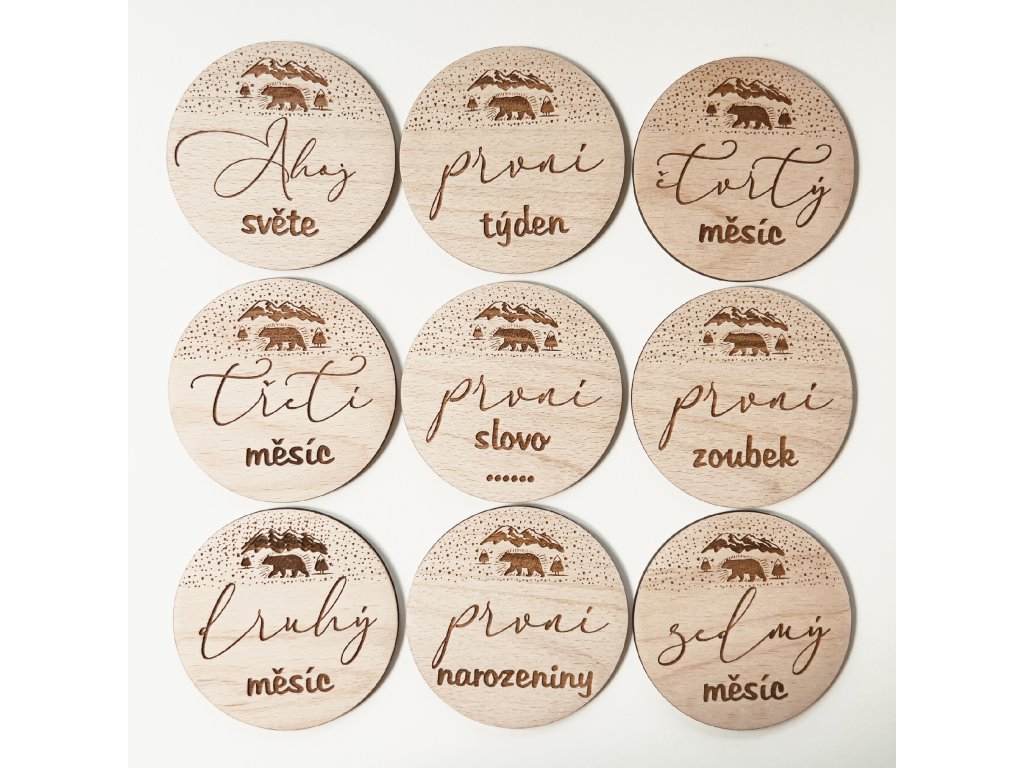 Ahoj
světe
první
týden
čtvrtý
měsíc
třetí
měsíc
první
slovo
......
první
zoubek
druhý
měsíc
první
narozeniny
sedmý
měsíc